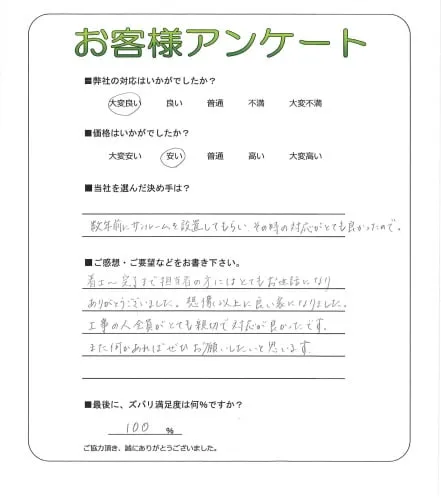 お客様アンケート
■弊社の対応はいかがでしたか？
大変良い 良い 普通 不満 大変不満
■価格はいかがでしたか？
大変安い 安い 普通 高い 大変高い
■当社を選んだ決め手は？
数年前にサンルームを設置してもらい、その時の対応がとても良かったので。
■ご感想・ご要望などをお書き下さい。
着工〜完了まで担当者の方にはとてもお世話になり
ありがとうございました。想像以上に良い家になりました。
工事の人全員がとても親切で対応が良かったです。
また何かあればぜひお願いしたいと思います。
■最後に、ズバリ満足度は何%ですか？
100 %
ご協力頂き、誠にありがとうございました。